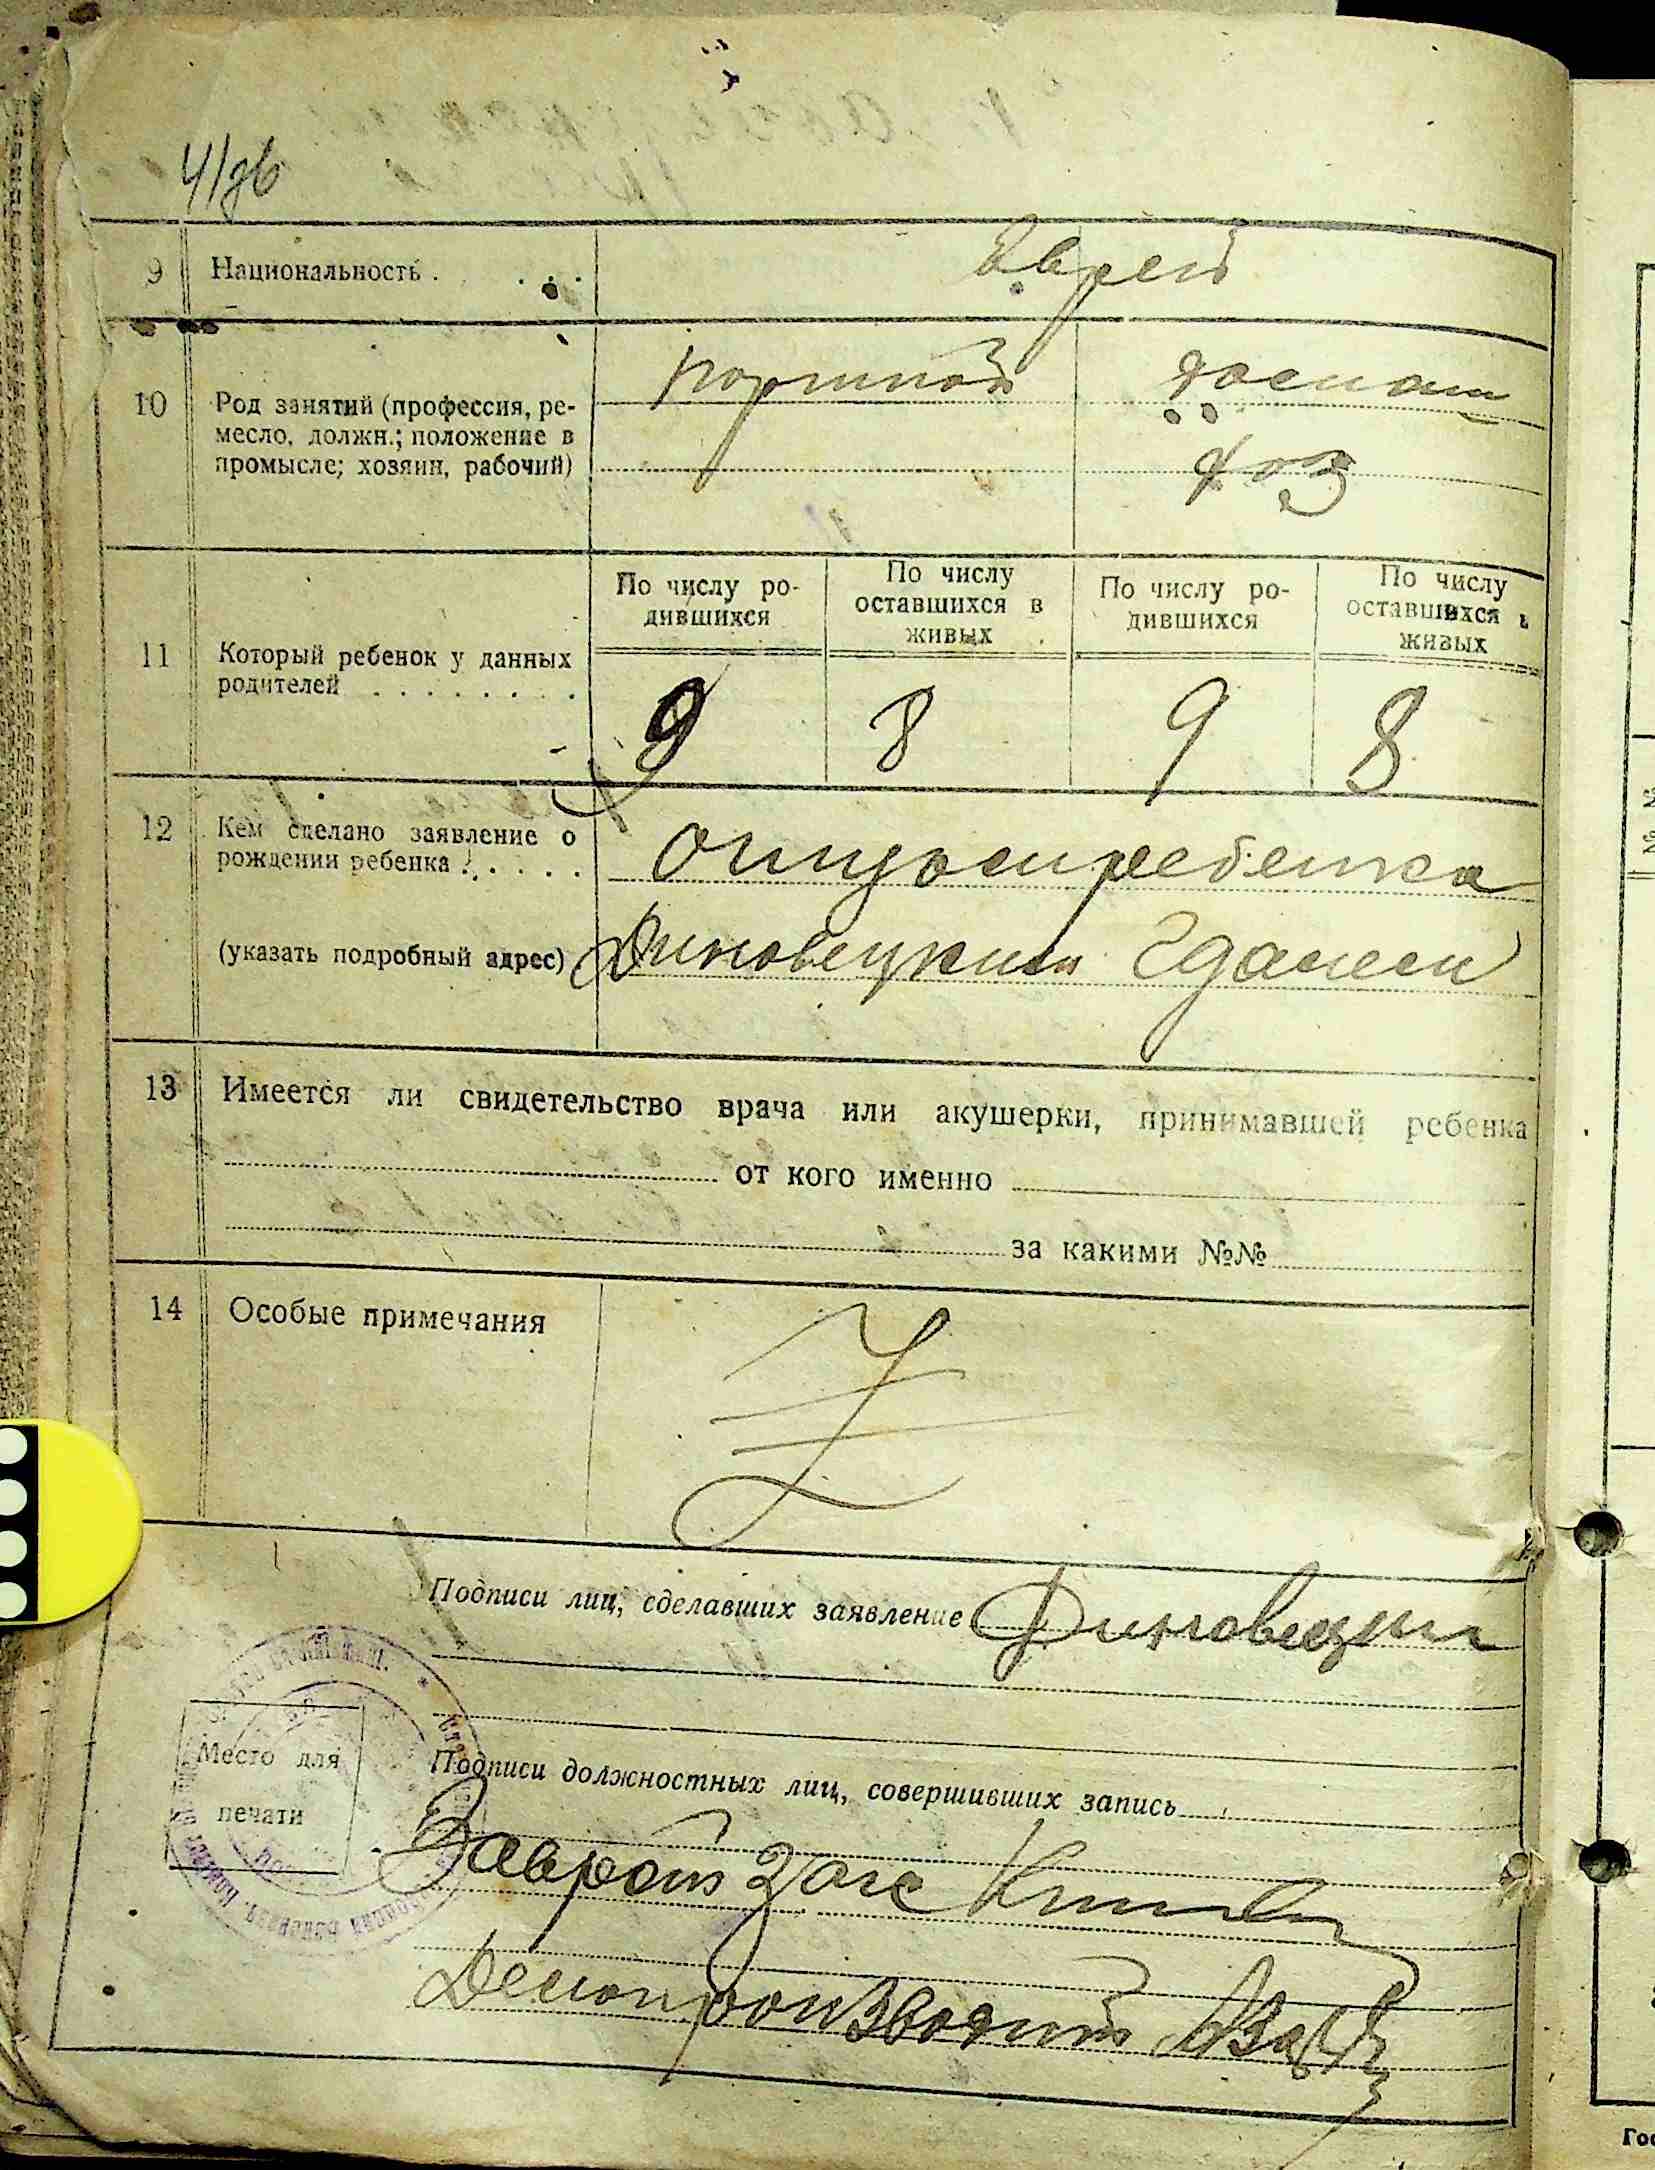 9 Национальность . . . . Еврей
10 Род занятий (профессия, ре-
месло, должн.; положение в
промысле; хозяин, рабочий)
портной домаш
хоз
11 Который ребенок у данных
родителей . . . . . . . . .
По числу ро-
дившихся
По числу
оставшихся в
живых
По числу ро-
дившихся
По числу
оставшихся в
живых
9 8 9 8
12 Кем сделано заявление о
рождении ребенка . . . . .
(указать подробный адрес)
отцом ребенка
13 Имеется ли свидетельство врача или акушерки, принимавшей ребенка
от кого именно
за какими №№
14 Особые примечания
Z
Подписи лиц, сделавших заявление
Место для
печати
Подписи должностных лиц, совершивших запись
Заврай загс
Делопроизводит
Гос